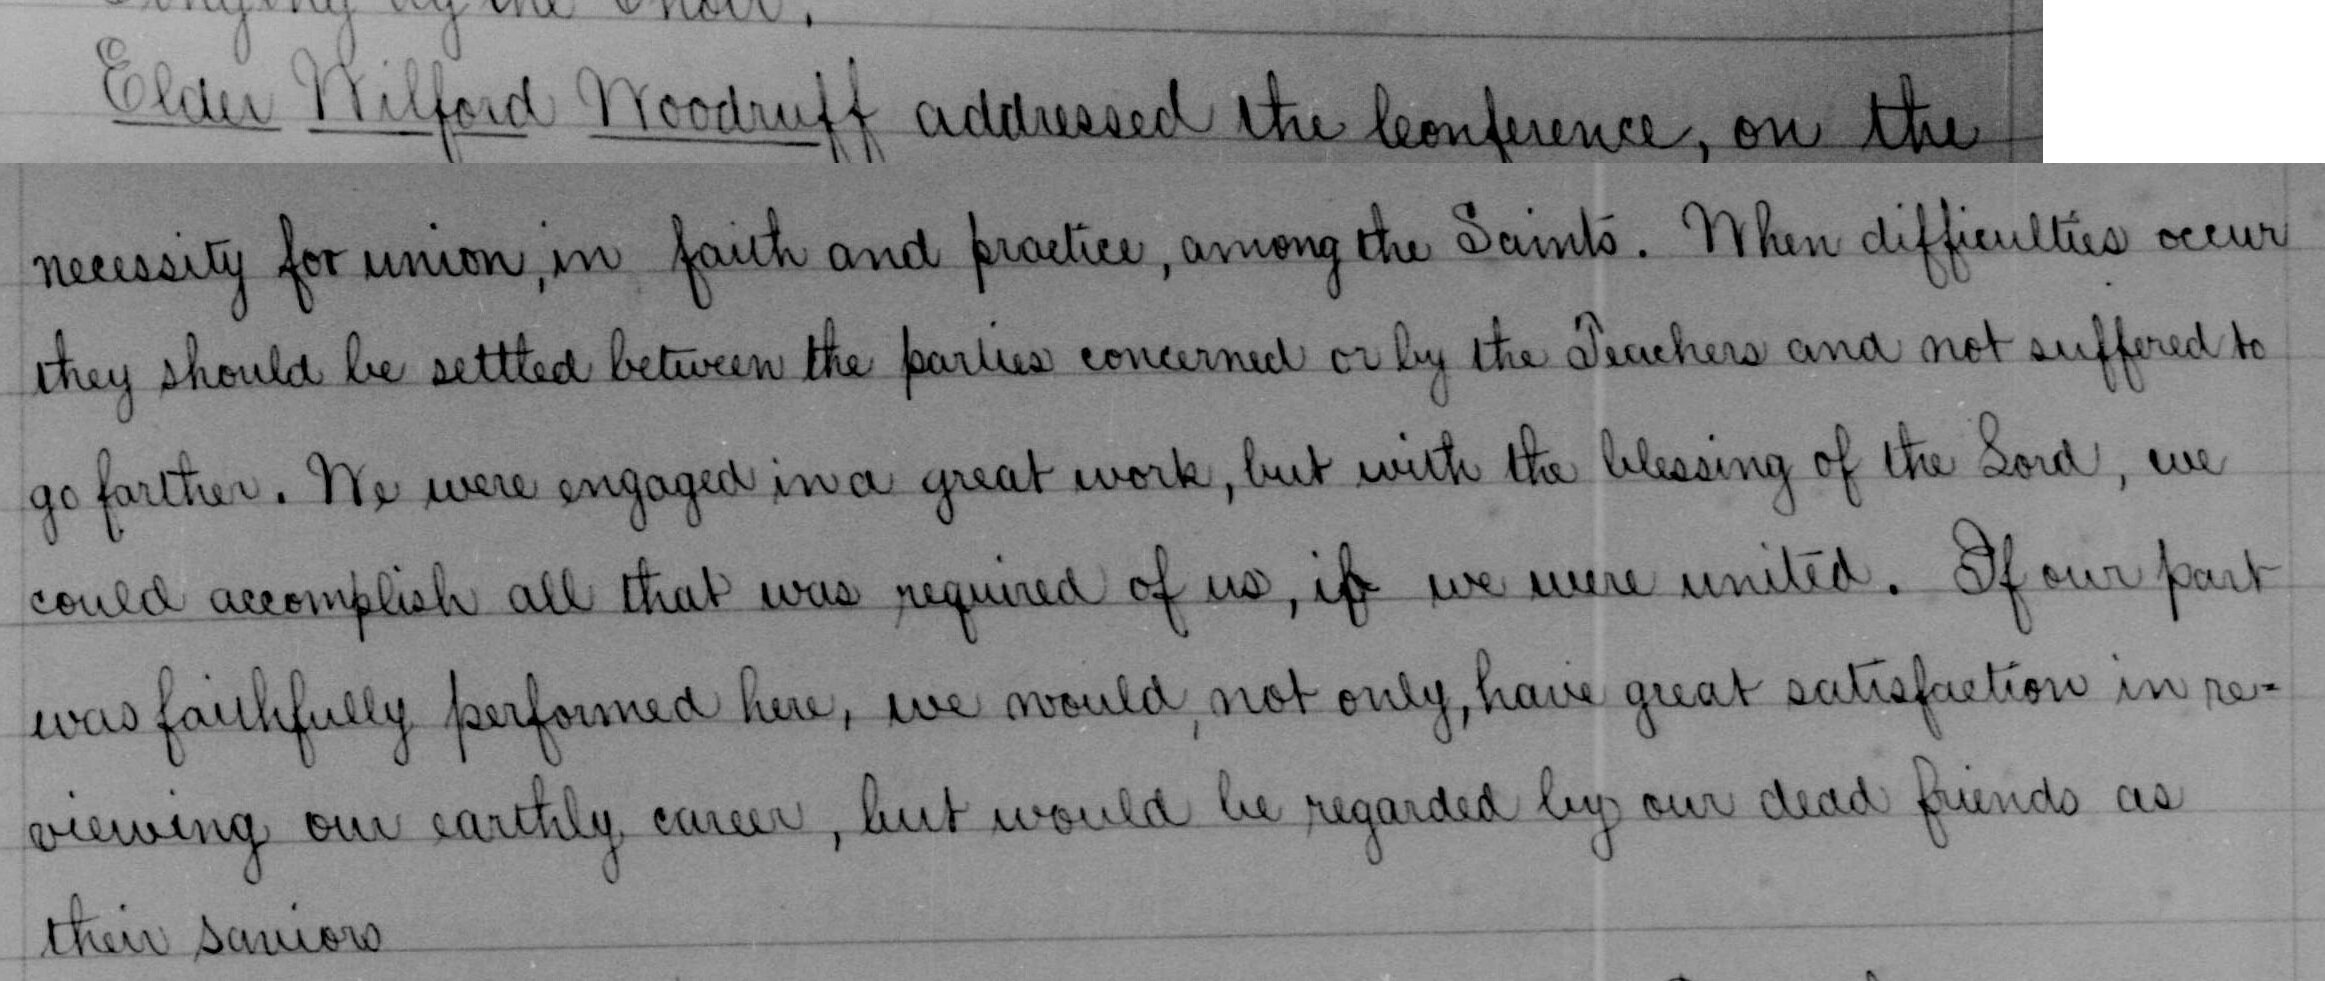 Singing by the Choir.
Elder Wilford Woodruff addressed the Conference, on the
necessity for union, in faith and practice, among the Saints. When difficulties occur
they should be settled between the parties concerned or by the Teachers and not suffered to
go farther. We were engaged in a great work, but with the blessing of the Lord, we
could accomplish all that was required of us, if we were united. If our part
was faithfully performed here, we would, not only, have great satisfaction in re=
viewing our earthly career, but would be regarded by our dead friends as
their saviors